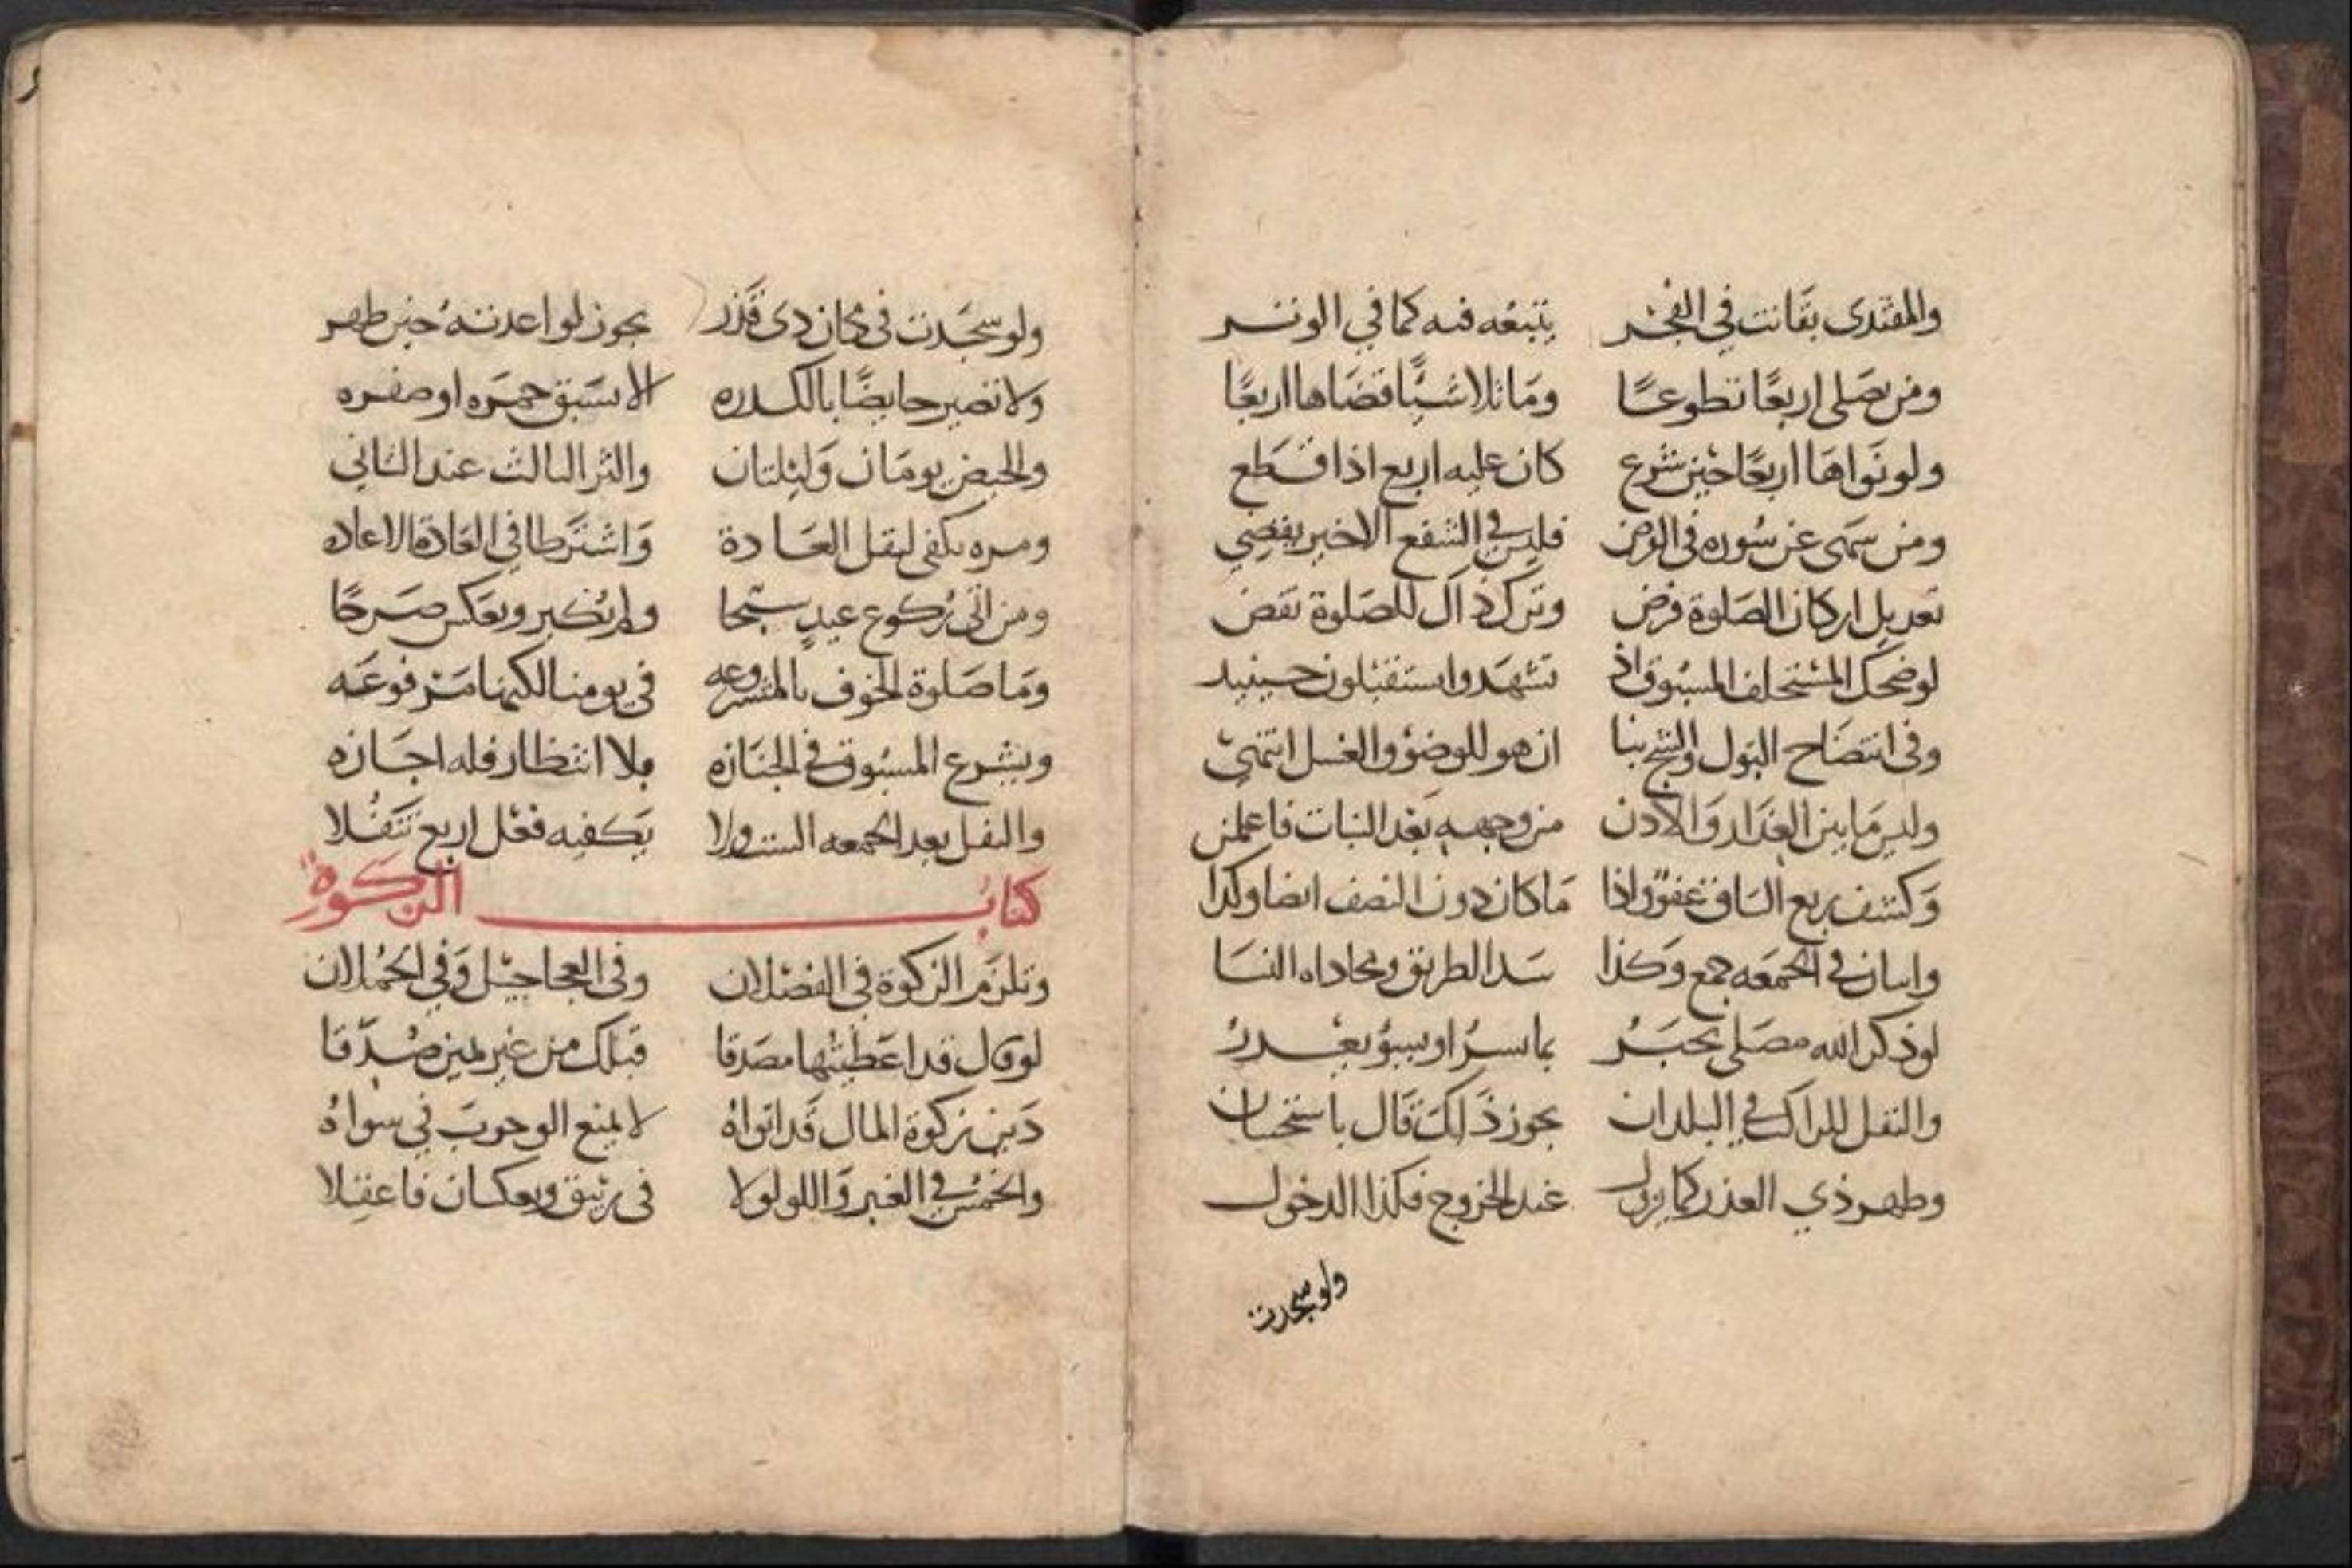 والمقتدى بقانت في الفجر يتبعه فيه كما في الوتر
ومن يصلى اربعًا تطوعًا وما تلا شيًّا قضاها اربعًا
ولو نواها اربعًا حين شرع كان عليه اربع اذا قطع
ومن سهى عن سوره في الفرض فليس في الشفع الاخير يقضي
تعديل اركان الصلوة فرض وترك ذاك للصلوة نقض
لو ضحك المستخلف المسبوق اذ تشهدوا استقبلون حينيد
وفى انتضاح البول والثلج بنا ان هو للوضوء والغسل انتهى
وليس ما بين العذار والاذن من وجهه بعد النبات فاعلمن
وكشف ربع الساق عفو واذا ما كان دون النصف ايضا وكذا
واسان في الجمعه جمع وكذا سد الطريق ومحاداه النسا
لو ذكر الله مصلى بخبر بما يسر او يسوء يعذر
والنفل للراكب في البلدان يجوز ذلك قال باستحسان
وطهر ذي العذر كما يزول عند الخروج فكذا الدخول
ولو سجدت
ولو سجدت فى مكان ذى قذر يجوز لو اعدته حين طهر
ولا تصير حايضًا بالكدره الا بسبق حمره او صفره
والحيض يومان وليلتان واكثر الثالث عند الثانى
ومره تكفى لنقل العادة واشترطا في العادة الاعاده
ومن اتى ركوع عيد سبحا ولم يكبر وبعكس صرحًا
وما صلوة الخوف بالمشروعه في يومنا لكنها مرفوعه
ويشرع المسبوق في الجنازه بلا انتظار فله اجازه
والنفل بعد الجمعه الست ولا يكفيه فعل اربع تنفلا
كتاب الزكوة
وتلزم الزكوة في الفصلان وفى العجاجيل وفي الحملان
لو قال قد اعطيتها مصدقا قبلك من غير يمين صدّقا
دين زكوة المال قد اتواه لا يمنع الوجوب في سواه
والخمس في العنبر واللولو لا فى زيبق وبعكسان فاعقلا